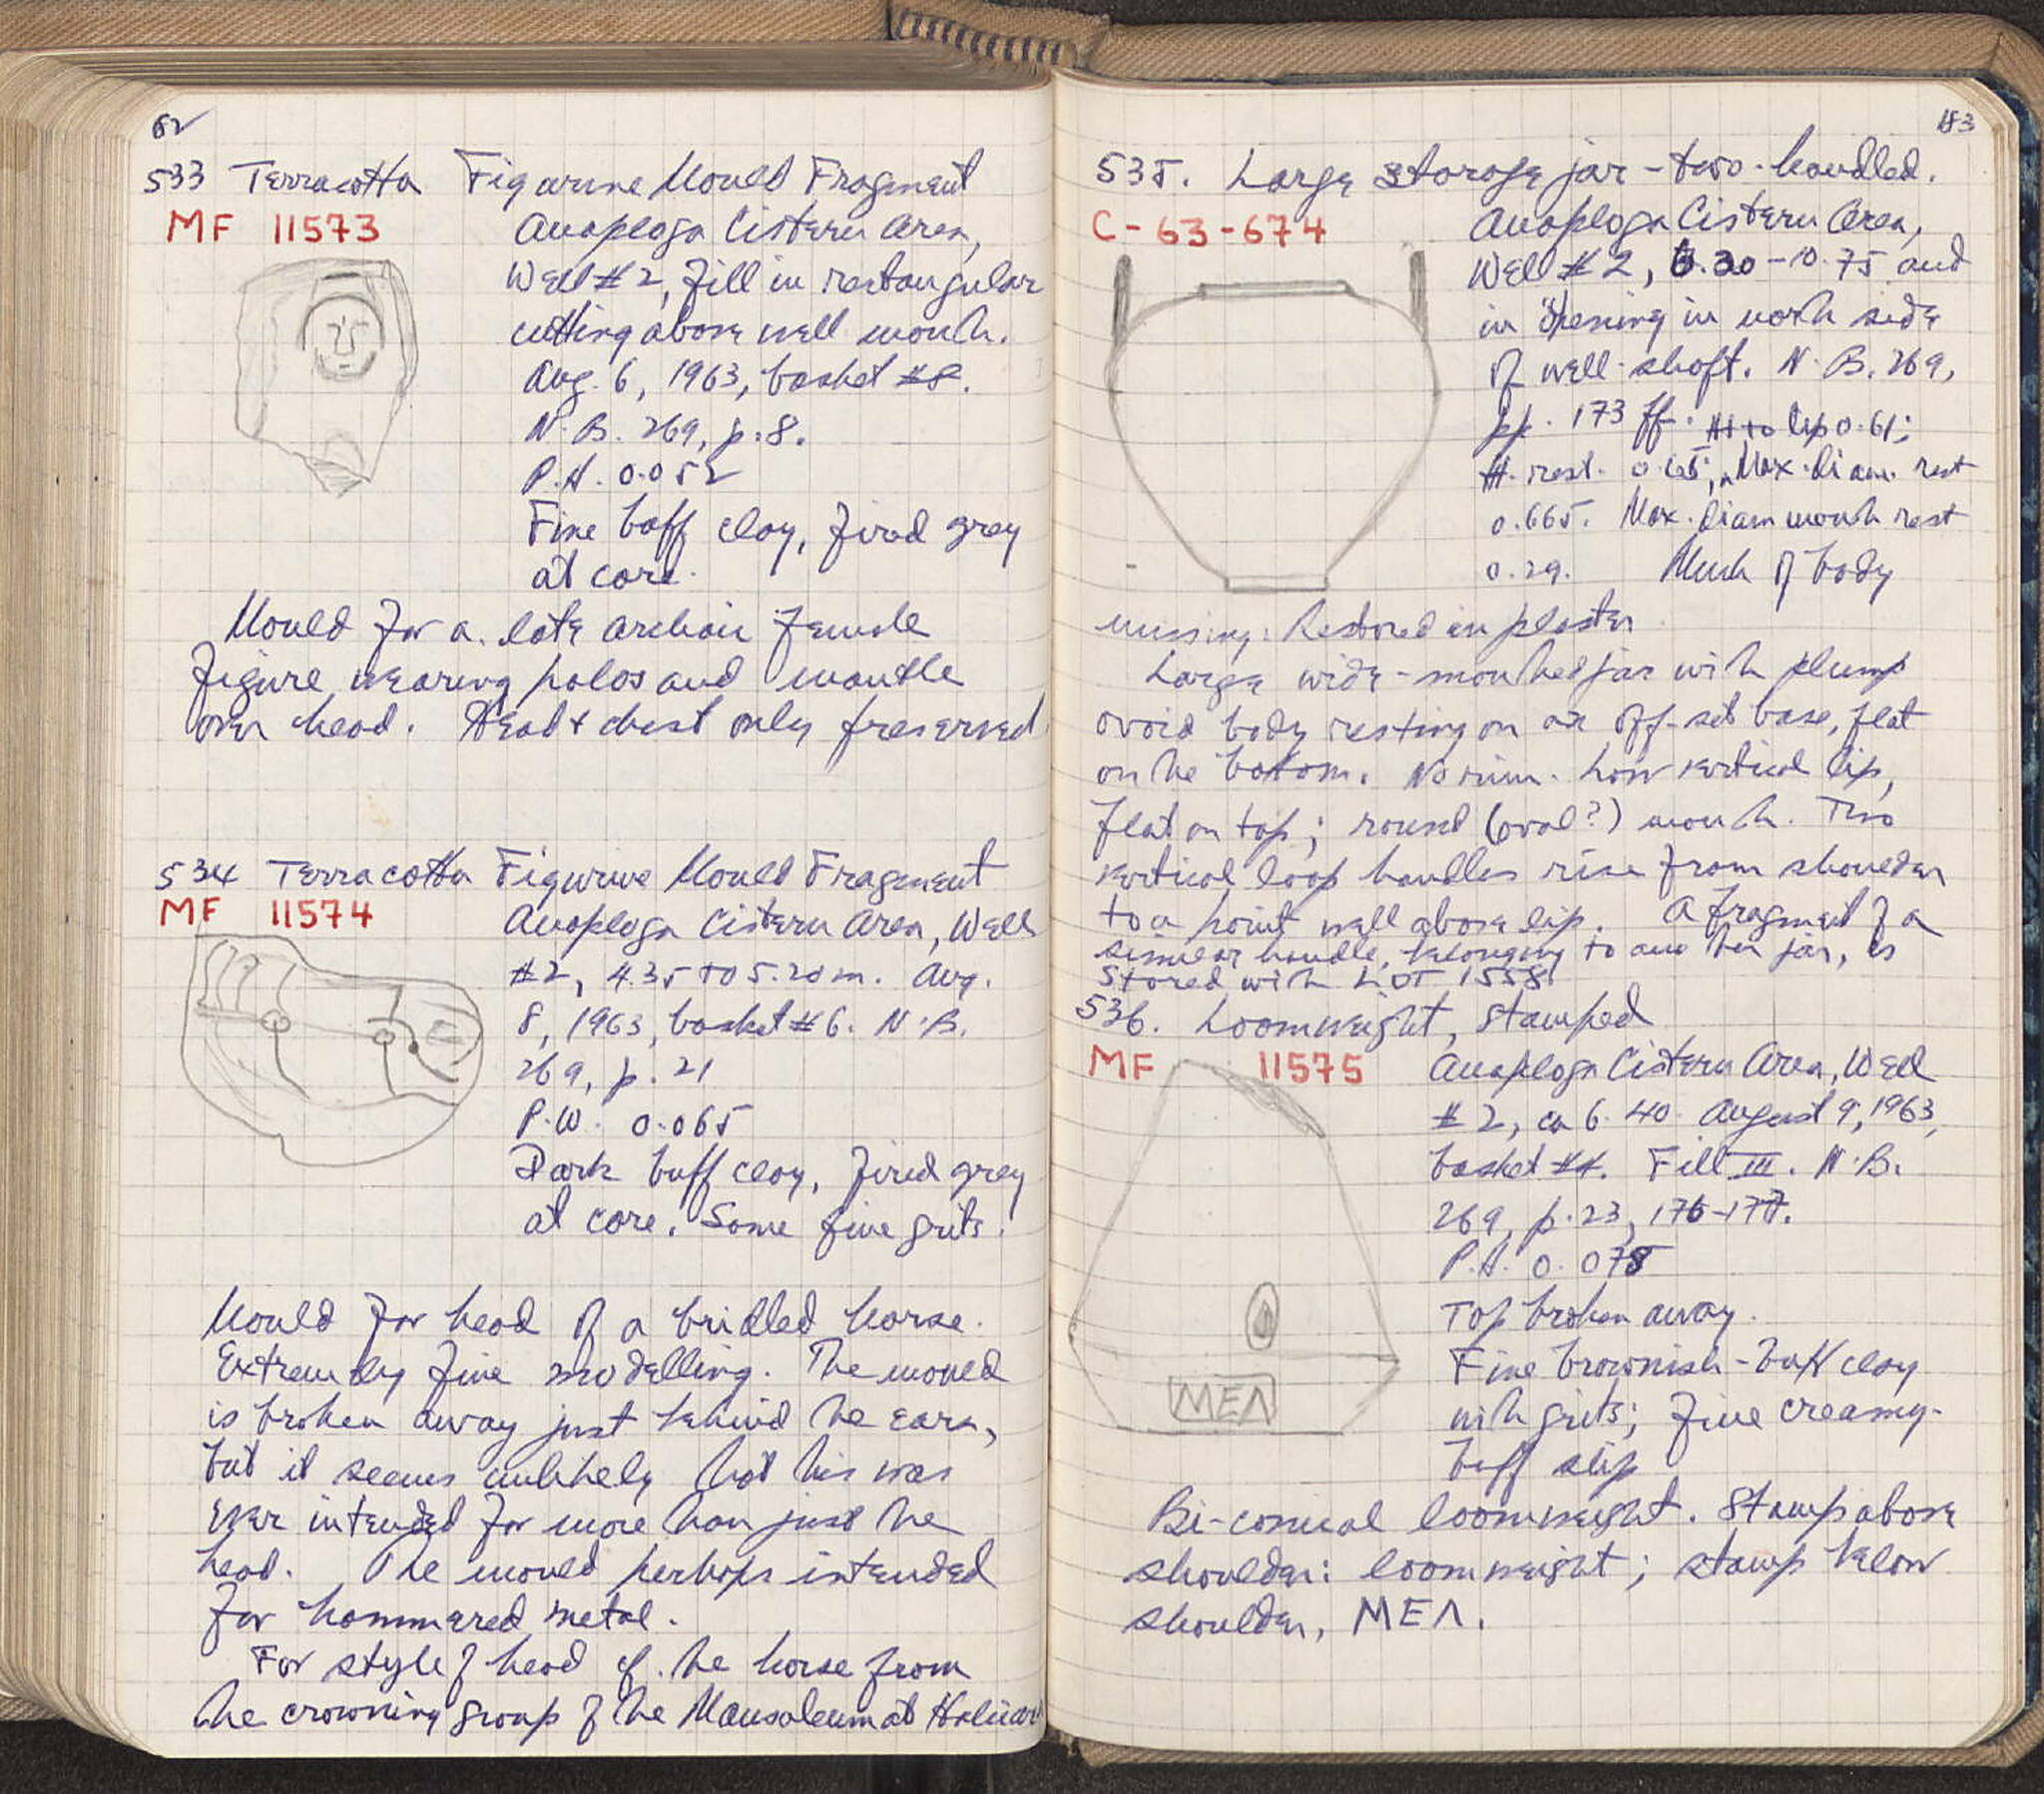 82
533 Terracotta Figurine Mould Fragment
MF 11573
Anaploga Cistern Area,
Well #2, fill in rectangular
cutting above well mouth.
Aug. 6, 1963, basket #8.
N.B. 269, p.8.
P.H. 0.052
Fine buff clay, fired grey
at core.
Mould for a late archaic female
figure wearing polos and mantle
over head. Head + chest only preserved
534 Terracotta Figurine Mould Fragment
MF 11574
Anaploga Cistern Area, Well
#2, 4.35 to 5.20 m. Aug.
8, 1963, basket #6. N.B.
269, p. 21
P.W. 0.065
Dark buff clay, fired grey
at core. Some fine grits.
Mould for head of a bridled horse.
Extremely fine modelling. The mould
is broken away just behind the ears,
but it seems unlikely that this was
ever intended for more than just the
head. The mould perhaps intended
for hammered metal.
For style of head cf. the horse from
the crowning group of the Mausoleum at Halicar
183
535. Large storage jar - two-handled.
C-63-674
Anaploga Cistern Area,
Well #2, .30-10.75 and
in opening in north side
of well-shaft. N.B. 269,
pp. 173 ff. Ht to lip 0.61;
H. rest. 0.65; Max. diam. rest
0.665. Max. diam mouth rest
0.29. Much of body
missing. Restored in plaster
Large wide-mouthed jar with plump
ovoid body resting on an off-set base, flat
on the bottom. No rim. Low vertical lip,
flat on top; round (oval?) mouth. Two
vertical loop handles rise from shoulder
to a point well above lip. A fragment of a
similar handle, belonging to another jar, is
stored with LOT 1558.
536. Loomweight, stamped
MF 11575
Anaploga Cistern Area, Well
#2, ca 6.40. August 9, 1963,
basket #4. Fill III. N.B.
269, p.23, 176-177.
P.H. 0.075
Top broken away.
Fine brownish-buff clay
with grits; fine creamy-
buff slip
ΜΕΛ
Bi-conical loomweight. Stamp above
shoulder: loomweight; stamp below
shoulder, ΜΕΛ.